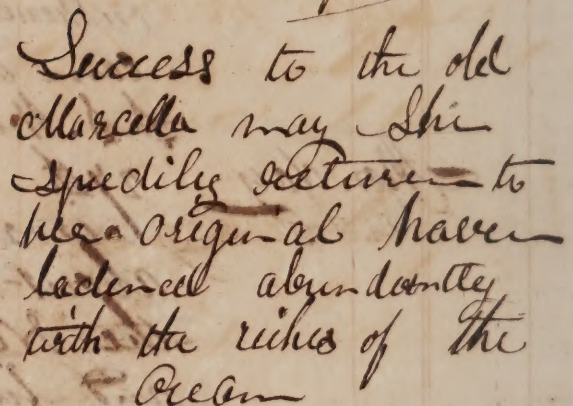 Success to the old
Marcella may she
spedily return to
her original haven
ladened abundantly
with the riches of the
Ocean